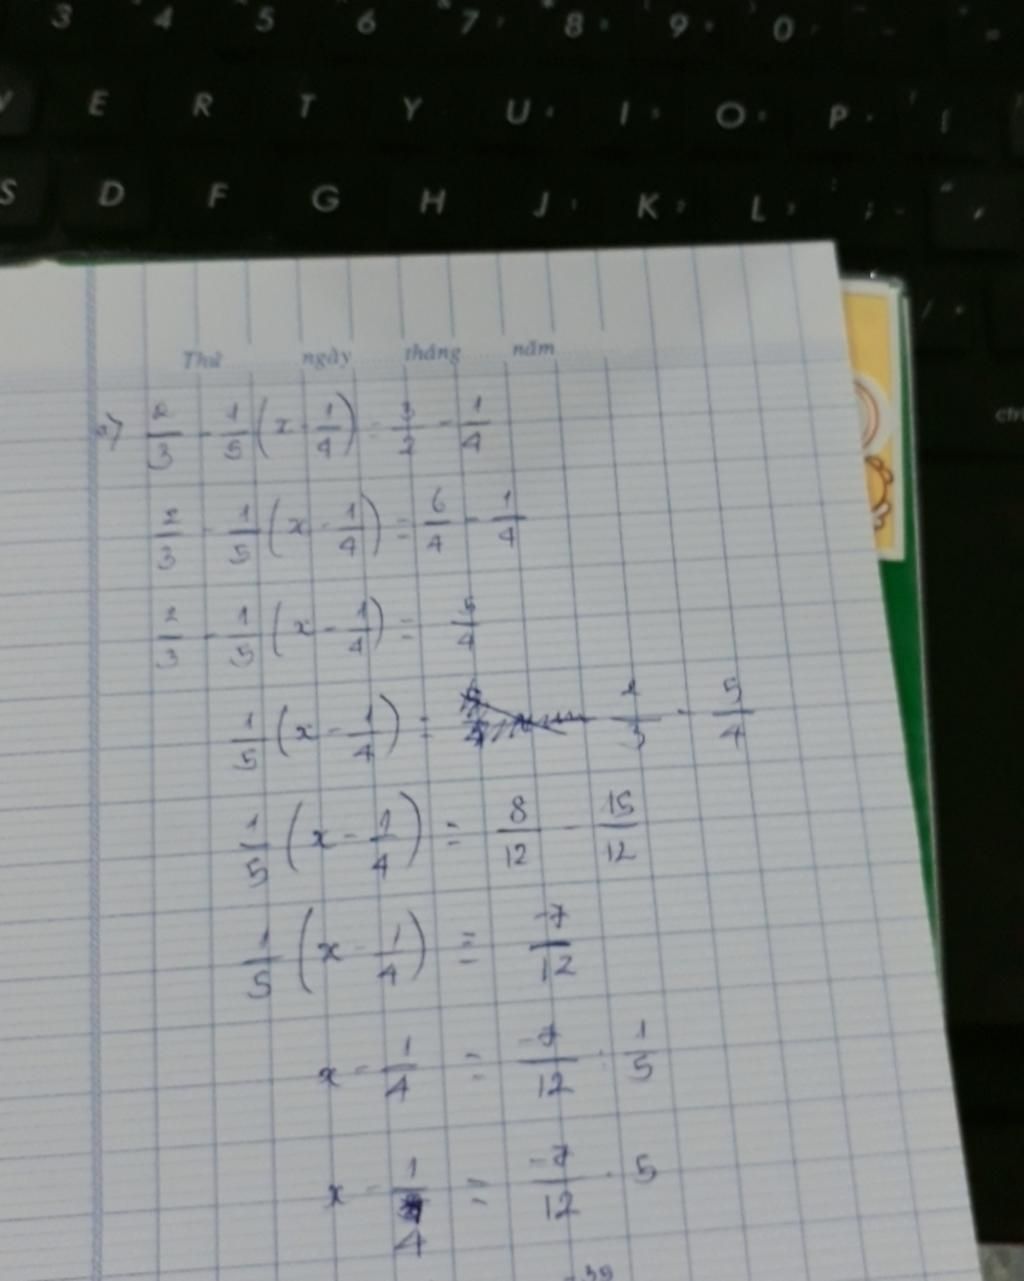 3 4 5 6 7 8 9 0 - =
E R T Y U I O P [
S D F G H J K L ; "
ctr
Thứ ngày tháng năm
a) 2/3 - 1/5 (x - 1/4) = 3/2 - 1/4
2/3 - 1/5 (x - 1/4) = 6/4 - 1/4
2/3 - 1/5 (x - 1/4) = 5/4
1/5 (x - 1/4) = 2/3 - 5/4
1/5 (x - 1/4) = 8/12 - 15/12
1/5 (x - 1/4) = -7/12
x - 1/4 = -7/12 : 1/5
x - 1/4 = -7/12 . 5